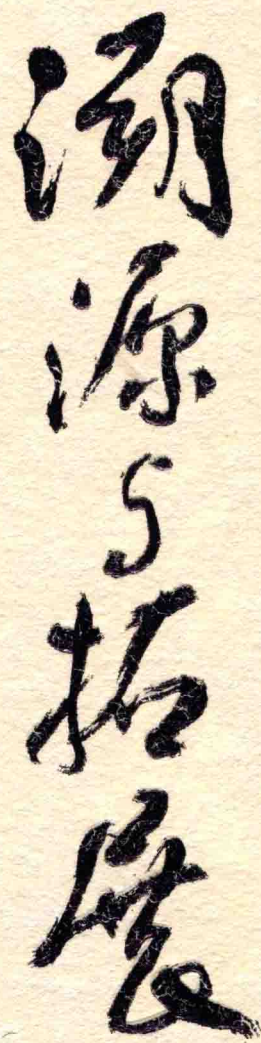 溯源与拓展